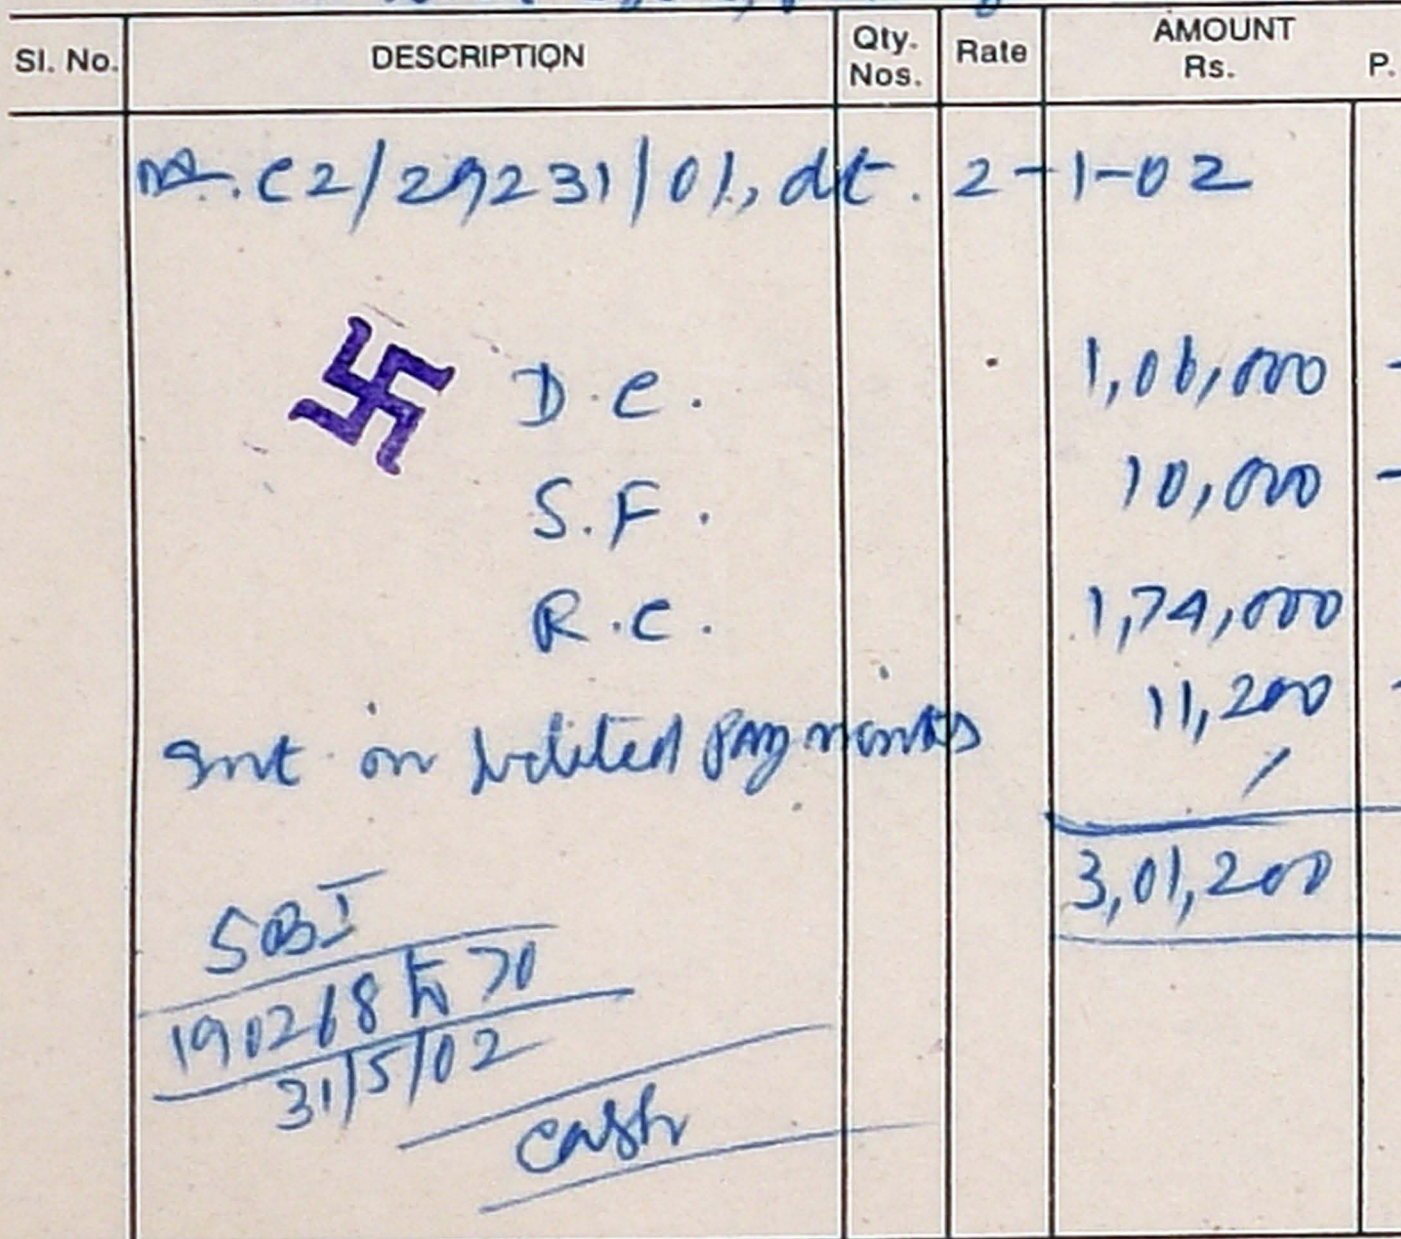 Sl. No. DESCRIPTION Qty. Nos. Rate AMOUNT Rs. P.
C2/29231/01, dt. 2-1-02
D.C. 1,06,000 -
S.F. 10,000 -
R.C. 1,74,000
11,200 -
Int on belated Payments
3,01,200
SBI
190268 to 70
31/5/02
Cash